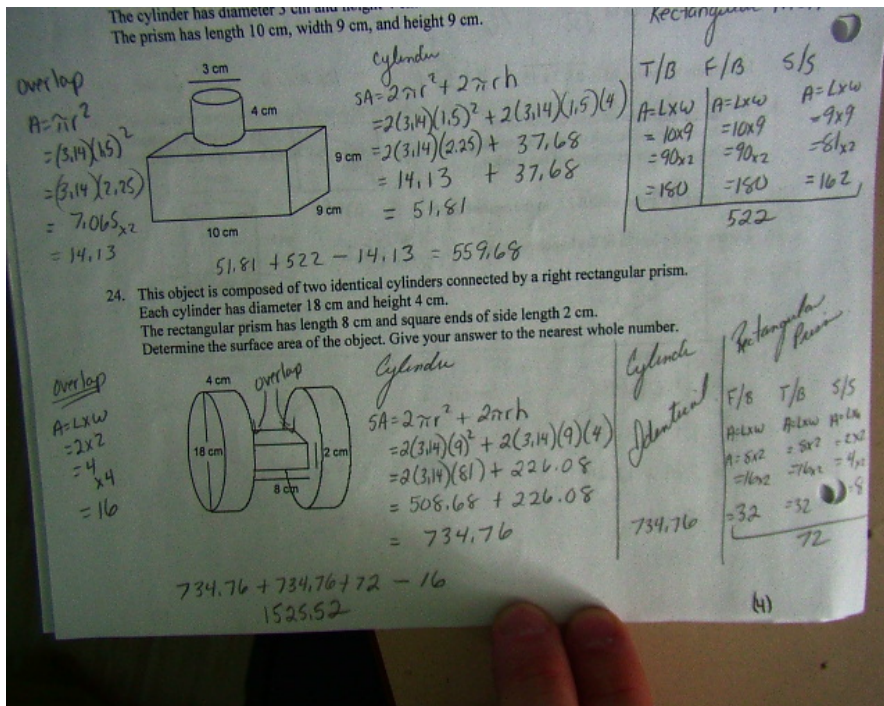 The cylinder has diameter 3 cm and
The prism has length 10 cm, width 9 cm, and height 9 cm.
overlap
A=πr²
=(3.14)(1.5)²
=(3.14)(2.25)
= 7.065x2
= 14.13
3 cm
4 cm
9 cm
9 cm
10 cm
Cylinder
SA=2πr²+2πrh
=2(3.14)(1.5)²+2(3.14)(1.5)(4)
=2(3.14)(2.25)+ 37.68
= 14.13 + 37.68
= 51.81
T/B F/B S/S
A=LxW A=LxW A=LxW
= 10x9 =10x9 =9x9
=90x2 =90x2 =81x2
=180 =180 =162
522
51.81 +522 - 14.13 = 559.68
24. This object is composed of two identical cylinders connected by a right rectangular prism.
Each cylinder has diameter 18 cm and height 4 cm.
The rectangular prism has length 8 cm and square ends of side length 2 cm.
Determine the surface area of the object. Give your answer to the nearest whole number.
overlap
A=LxW
=2x2
=4
x4
=16
4 cm
overlap
18 cm
2 cm
8 cm
Cylinder
SA=2πr² + 2πrh
=2(3.14)(9)²+2(3.14)(9)(4)
=2(3.14)(81)+ 226.08
= 508.68 + 226.08
= 734.76
Cylinder
Identical
734.76
Rectangular
Prism
F/B T/B S/S
A=LxW A=LxW A=LxW
A=8x2 =8x2 =2x2
=16x2 =16x2 =4x2
=32 =32 =8
72
734.76 +734.76+72 - 16
1525.52
(4)